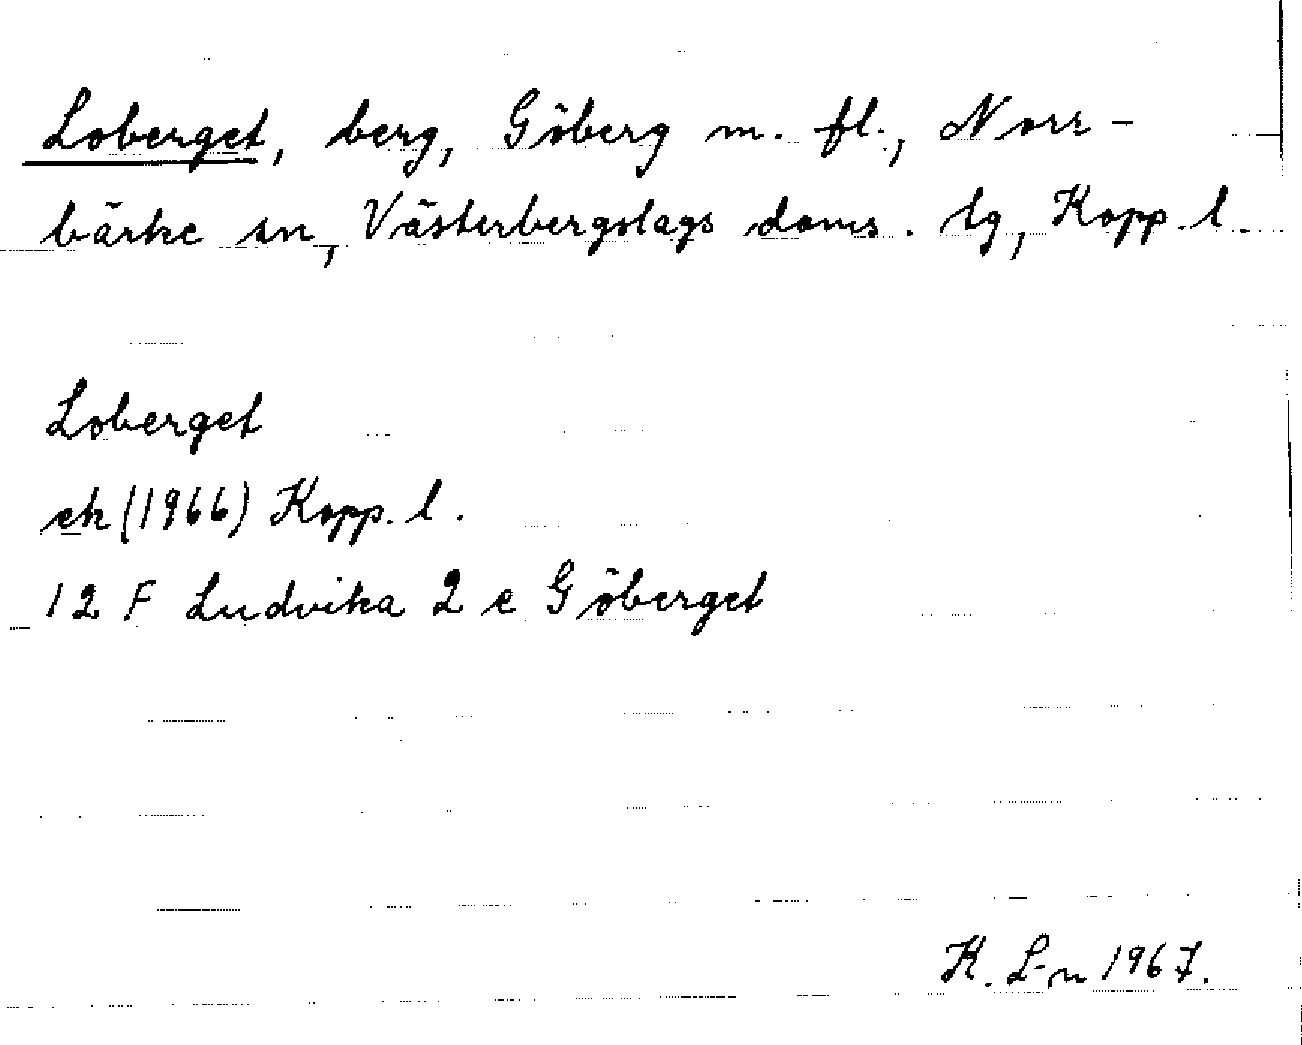 Loberget, berg, Göberg m. fl., Norr-
bärke sn, Västerbergslags doms. tg, Kopp. l.
Loberget
ek (1966) Kopp. l.
12 F Ludvika 2 e Göberget
K. L-n 1967.